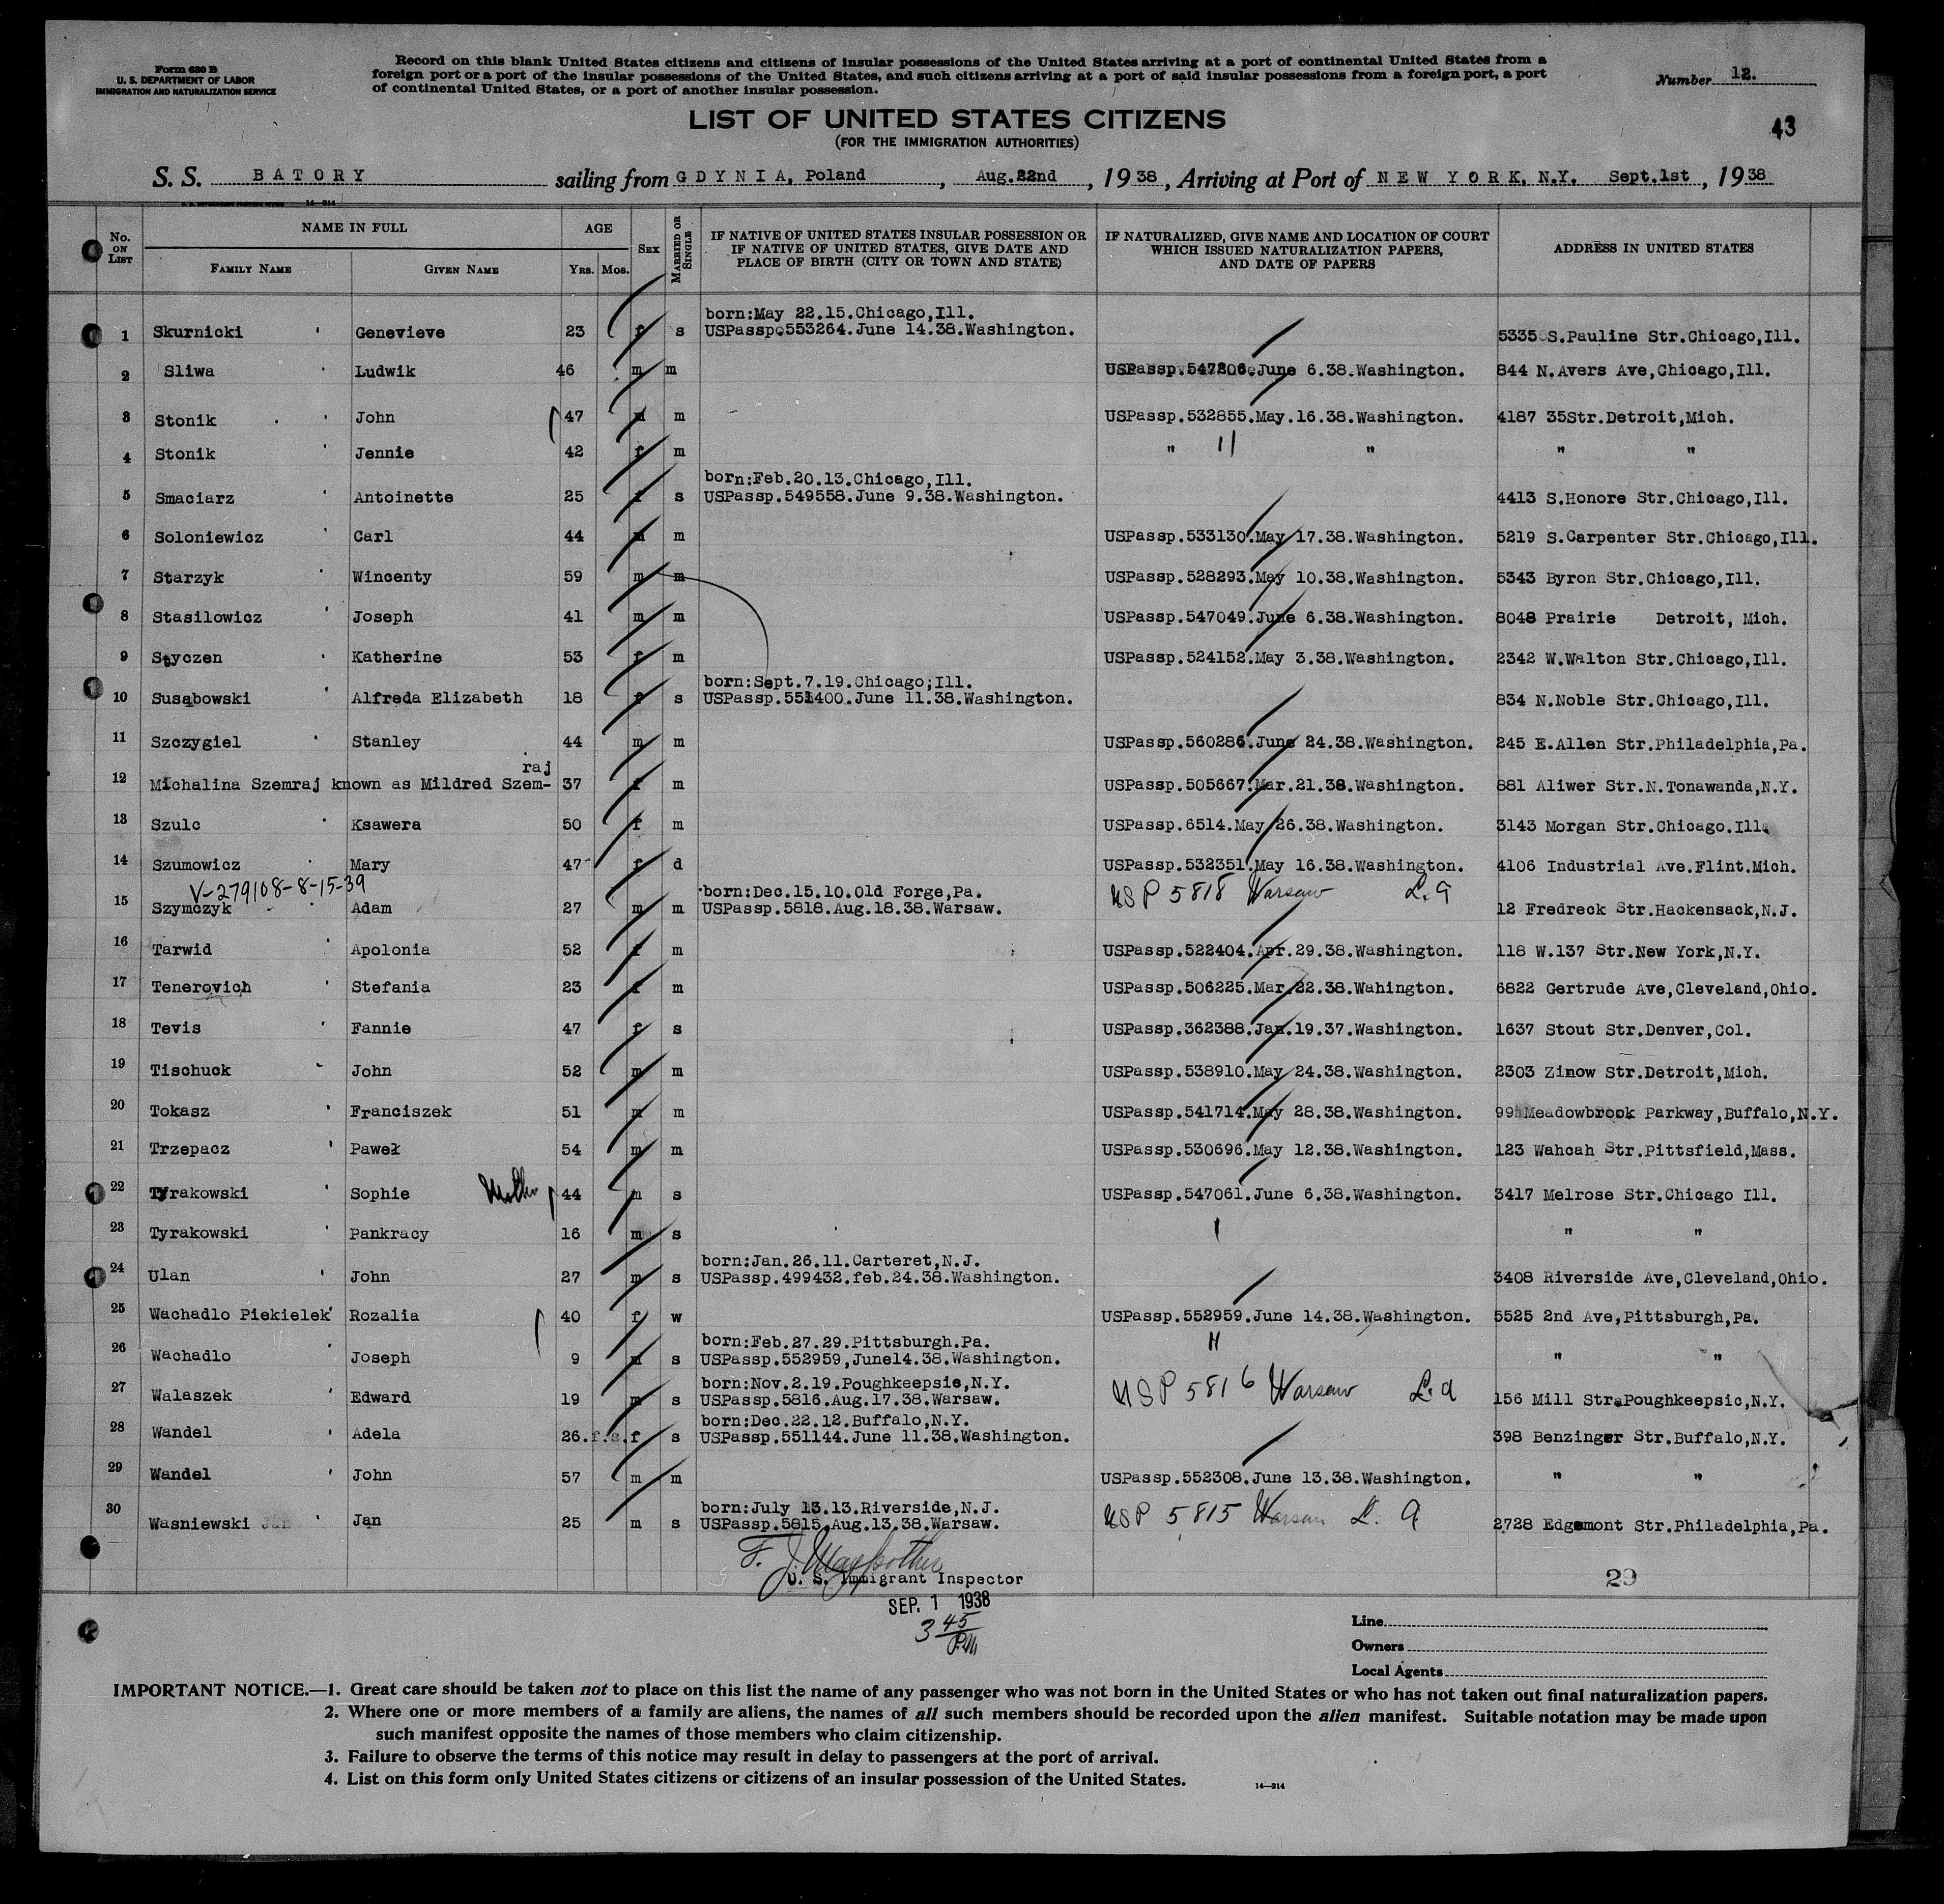 Form 630 B
U. S. DEPARTMENT OF LABOR
IMMIGRATION AND NATURALIZATION SERVICE
Record on this blank United States citizens and citizens of insular possessions of the United States arriving at a port of continental United States from a
foreign port or a port of the insular possessions of the United States, and such citizens arriving at a port of said insular possessions from a foreign port, a port
of continental United States, or a port of another insular possession.
Number 12.
LIST OF UNITED STATES CITIZENS
(FOR THE IMMIGRATION AUTHORITIES)
43
S. S. BATORY sailing from GDYNIA, Poland, Aug.22nd, 1938, Arriving at Port of NEW YORK, N.Y. Sept.1st, 1938
No. ON LIST NAME IN FULL AGE SEX MARRIED OR SINGLE
FAMILY NAME GIVEN NAME YRS. MOS.
IF NATIVE OF UNITED STATES INSULAR POSSESSION OR
IF NATIVE OF UNITED STATES, GIVE DATE AND
PLACE OF BIRTH (CITY OR TOWN AND STATE)
IF NATURALIZED, GIVE NAME AND LOCATION OF COURT
WHICH ISSUED NATURALIZATION PAPERS,
AND DATE OF PAPERS
ADDRESS IN UNITED STATES
born:May 22.15.Chicago,Ill.
1 Skurnicki Genevieve 23 f s USPassp.553264.June 14.38.Washington. 5335 S.Pauline Str.Chicago,Ill.
2 Sliwa Ludwik 46 m m USPassp.547206.June 6.38.Washington. 844 N.Avers Ave,Chicago,Ill.
3 Stonik John 47 m m USPassp.532855.May.16.38.Washington. 4187 35Str.Detroit,Mich.
4 Stonik Jennie 42 f m " " " "
born:Feb.20.13.Chicago,Ill.
5 Smaciarz Antoinette 25 f s USPassp.549558.June 9.38.Washington. 4413 S.Honore Str.Chicago,Ill.
6 Soloniewicz Carl 44 m m USPassp.533130.May 17.38.Washington. 5219 S.Carpenter Str.Chicago,Ill.
7 Starzyk Wincenty 59 m m USPassp.528293.May 10.38.Washington. 5343 Byron Str.Chicago,Ill.
8 Stasilowicz Joseph 41 m m USPassp.547049.June 6.38.Washington. 8048 Prairie Detroit, Mich.
9 Styczen Katherine 53 f m USPassp.524152.May 3.38.Washington. 2342 W.Walton Str.Chicago,Ill.
born:Sept.7.19.Chicago;Ill.
10 Susabowski Alfreda Elizabeth 18 f s USPassp.551400.June 11.38.Washington. 834 N.Noble Str.Chicago,Ill.
11 Szczygiel Stanley 44 m m USPassp.560286.June 24.38.Washington. 245 E.Allen Str.Philadelphia,Pa.
raj
12 Michalina Szemraj known as Mildred Szem- 37 f m USPassp.505667.Mar.21.38.Washington. 881 Aliwer Str.N.Tonawanda,N.Y.
13 Szulc Ksawera 50 f m USPassp.6514.May 26.38.Washington. 3143 Morgan Str.Chicago.Ill.
14 Szumowicz Mary 47 f d USPassp.532351.May 16.38.Washington. 4106 Industrial Ave.Flint.Mich.
V-279108-8-15-39 born:Dec.15.10.Old Forge,Pa. USP 5818 Warsaw L.a
15 Szymczyk Adam 27 m m USPassp.5818.Aug.18.38.Warsaw. 12 Fredreck Str.Hackensack,N.J.
16 Tarwid Apolonia 52 f m USPassp.522404.Apr.29.38.Washington. 118 W.137 Str.New York,N.Y.
17 Tenerovich Stefania 23 f m USPassp.506225.Mar.22.38.Wahington. 6822 Gertrude Ave,Cleveland,Ohio.
18 Tevis Fannie 47 f s USPassp.362388.Jan.19.37.Washington. 1637 Stout Str.Denver,Col.
19 Tischuck John 52 m m USPassp.538910.May 24.38.Washington. 2303 Zinow Str.Detroit,Mich.
20 Tokasz Franciszek 51 m m USPassp.541714.May 28.38.Washington. 99 Meadowbrook Parkway,Buffalo,N.Y.
21 Trzepacz Paweł 54 m m USPassp.530696.May 12.38.Washington. 123 Wahcah Str.Pittsfield,Mass.
22 Tyrakowski Sophie 44 m s USPassp.547061.June 6.38.Washington. 3417 Melrose Str.Chicago Ill.
23 Tyrakowski Pankracy 16 m s " "
born:Jan.26.11.Carteret,N.J.
24 Ulan John 27 m s USPassp.499432.feb.24.38.Washington. 3408 Riverside Ave,Cleveland,Ohio.
25 Wachadlo Piekielek Rozalia 40 f w USPassp.552959.June 14.38.Washington. 5525 2nd Ave,Pittsburgh,Pa.
born:Feb.27.29.Pittsburgh.Pa. "
26 Wachadlo Joseph 9 m s USPassp.552959,June14.38.Washington. " "
born:Nov.2.19.Poughkeepsie,N.Y. USP 5816 Warsaw L.a
27 Walaszek Edward 19 m s USPassp.5816.Aug.17.38.Warsaw. 156 Mill Str.Poughkeepsic,N.Y.
born:Dec.22.12.Buffalo,N.Y.
28 Wandel Adela 26.f.s.f s USPassp.551144.June 11.38.Washington. 398 Benzinger Str.Buffalo,N.Y.
29 Wandel John 57 m m USPassp.552308.June 13.38.Washington. " "
born:July 13.13.Riverside,N.J. USP 5815 Warsaw L. a
30 Wasniewski Jan Jan 25 m s USPassp.5815,Aug.13.38.Warsaw. 2728 Edgemont Str.Philadelphia,Pa.
U. S. Immigrant Inspector
29
SEP. 1 1938
3 45 P.M.
Line
Owners
Local Agents
IMPORTANT NOTICE.—1. Great care should be taken not to place on this list the name of any passenger who was not born in the United States or who has not taken out final naturalization papers.
2. Where one or more members of a family are aliens, the names of all such members should be recorded upon the alien manifest. Suitable notation may be made upon
such manifest opposite the names of those members who claim citizenship.
3. Failure to observe the terms of this notice may result in delay to passengers at the port of arrival.
4. List on this form only United States citizens or citizens of an insular possession of the United States.
14—314